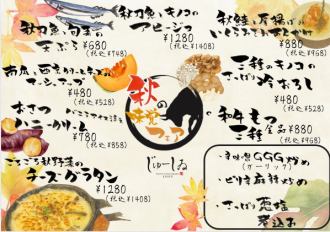 秋刀魚と旬菜の
天ぷら ¥680
(税込 ¥748)
秋刀魚とキノコの
アヒージョ
¥1280
(税込 ¥1408)
秋鮭と厚揚げの
¥880
(税込 ¥968)
南瓜と西京クリームチーズの
¥480
(税込 ¥528)
三種のキノコの
さっぱり冷おろし
¥480
(税込 ¥528)
秋の
味覚
フェア
じゅーしぃ
おさつ
ハニークリーム
バニラアイス添え
¥780
(税込 ¥858)
和牛もつ
三種
全品 ¥880
(税込 ¥968)
ごろごろ秋野菜の
チーズグラタン
¥1280
(税込 ¥1408)
・旨味噌GGG炒め
(ガーリック)
・ピリ辛麻辣炒め
・さっぱり
煮込み